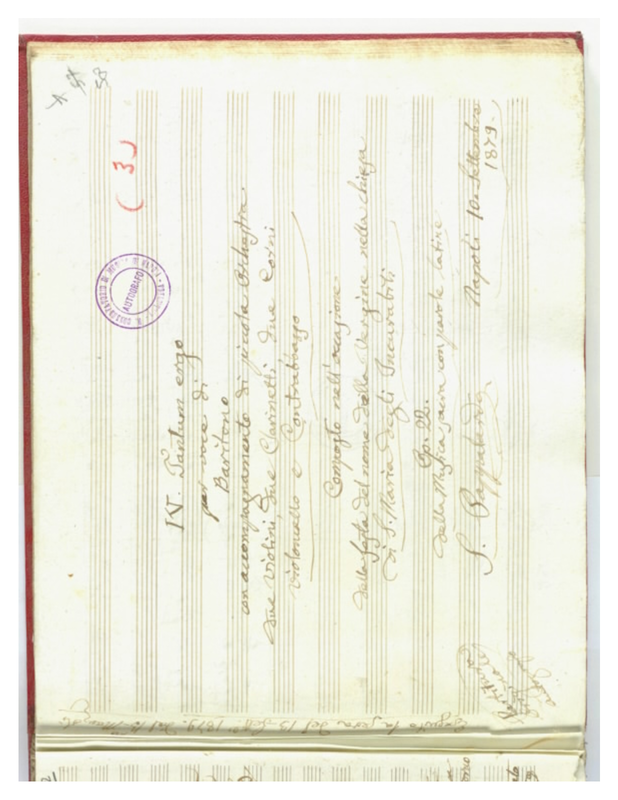 (3)
AUTOGRAFO
IV. Tantum ergo
per voce di
Baritono
con accompagnamento di piccola Orchestra
due Violini, due Clarinetti due Corni
Violoncello e Contrabbasso
Composto nell'occasione
della festa del nome della Vergine nella chiesa
di S. Maria degli Incurabili
Op. 22.
della Musica sacra con parole latine
S. Pappalardo
Napoli 10 Settembre
1879.
la sera del 13 Sett. 1879